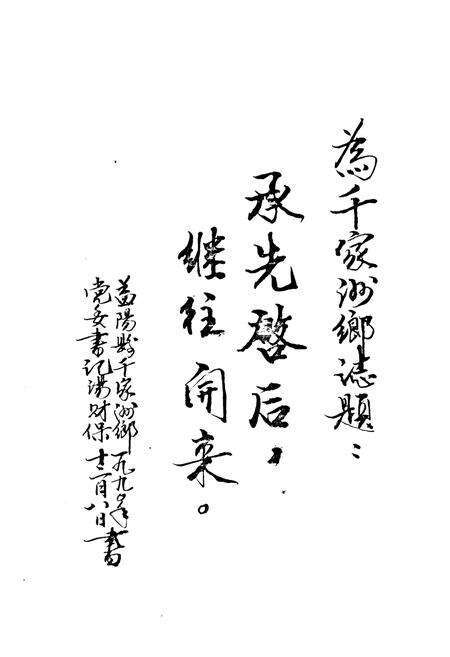 為千家洲鄉誌題：
承先啓后，
继往开来。
益陽縣千家洲鄉
党委書记湯财保
一九九〇年
十二月八日書